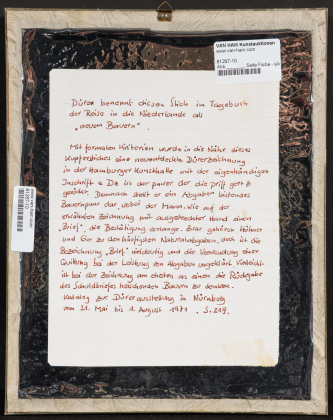 VAN HAM Kunstauktionen
www.van-ham.com
61297-10
Dürer benennt diesen Stich im Tagebuch
der Reise in die Niederlande als
„neuen Bauern".
Mit formalen Kriterien wurde in die Nähe dieses
Kupferstiches eine neuentdeckte Dürerzeichnung
in der Hamburger Kunsthalle mit der eigenhändigen
Inschrift Dz ist der pawer der die priff
Demnach stellt er ein Abgaben leistendes
Bauernpaar dar, wobei der Mann, wie auf der
erwähnten Zeichnung mit ausgestreckter Hand einen
„Brief", die Bestätigung verlange. Zwar gehören Hühner
und Eier zu den bäuerlichen Naturalabgaben, doch ist die
Bezeichnung „Brief" vieldeutig und die Verwendung einer
Quittung bei der Leistung von Abgaben ungeklärt. Vielleicht
ist bei der Zeichnung am ehesten an einen die Rückgabe
des Schuldbriefes heischenden Bauern zu denken.
Katalog zur Dürerausstellung in Nürnberg
vom 21. Mai bis 1. August 1971. S. 219.